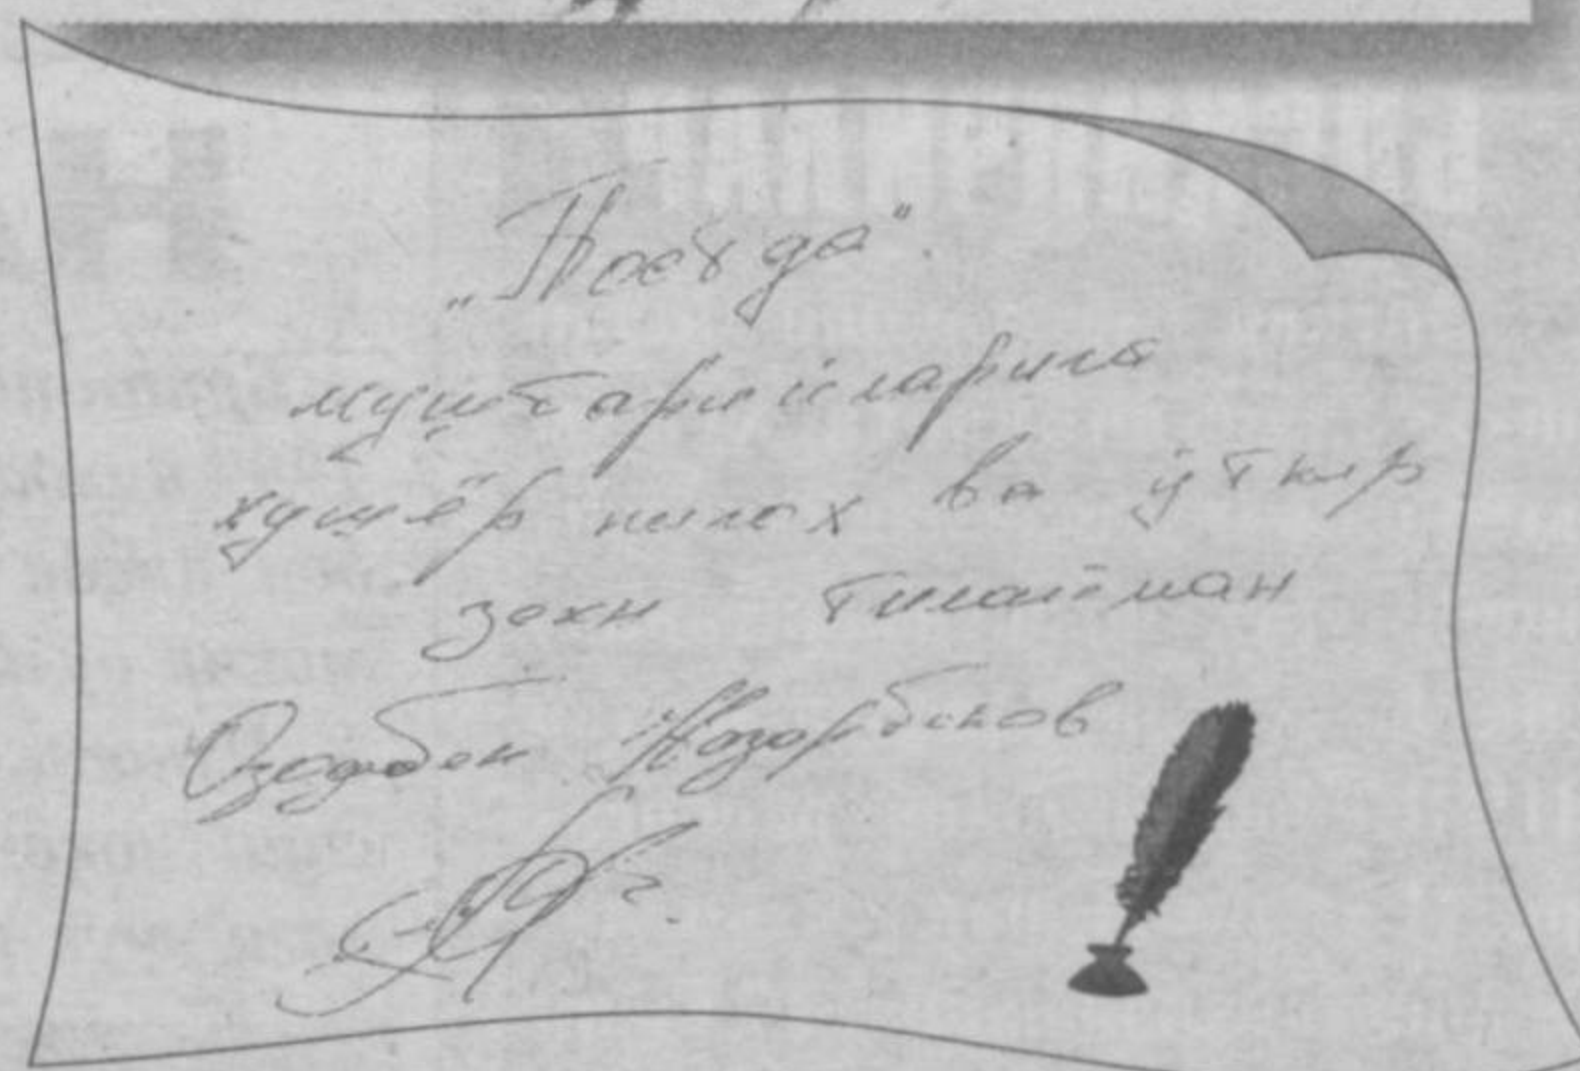 „Поезда".
муштарийларига
хушёр нигох ва ўткир
зехн тилайман
Озодбек Назарбеков